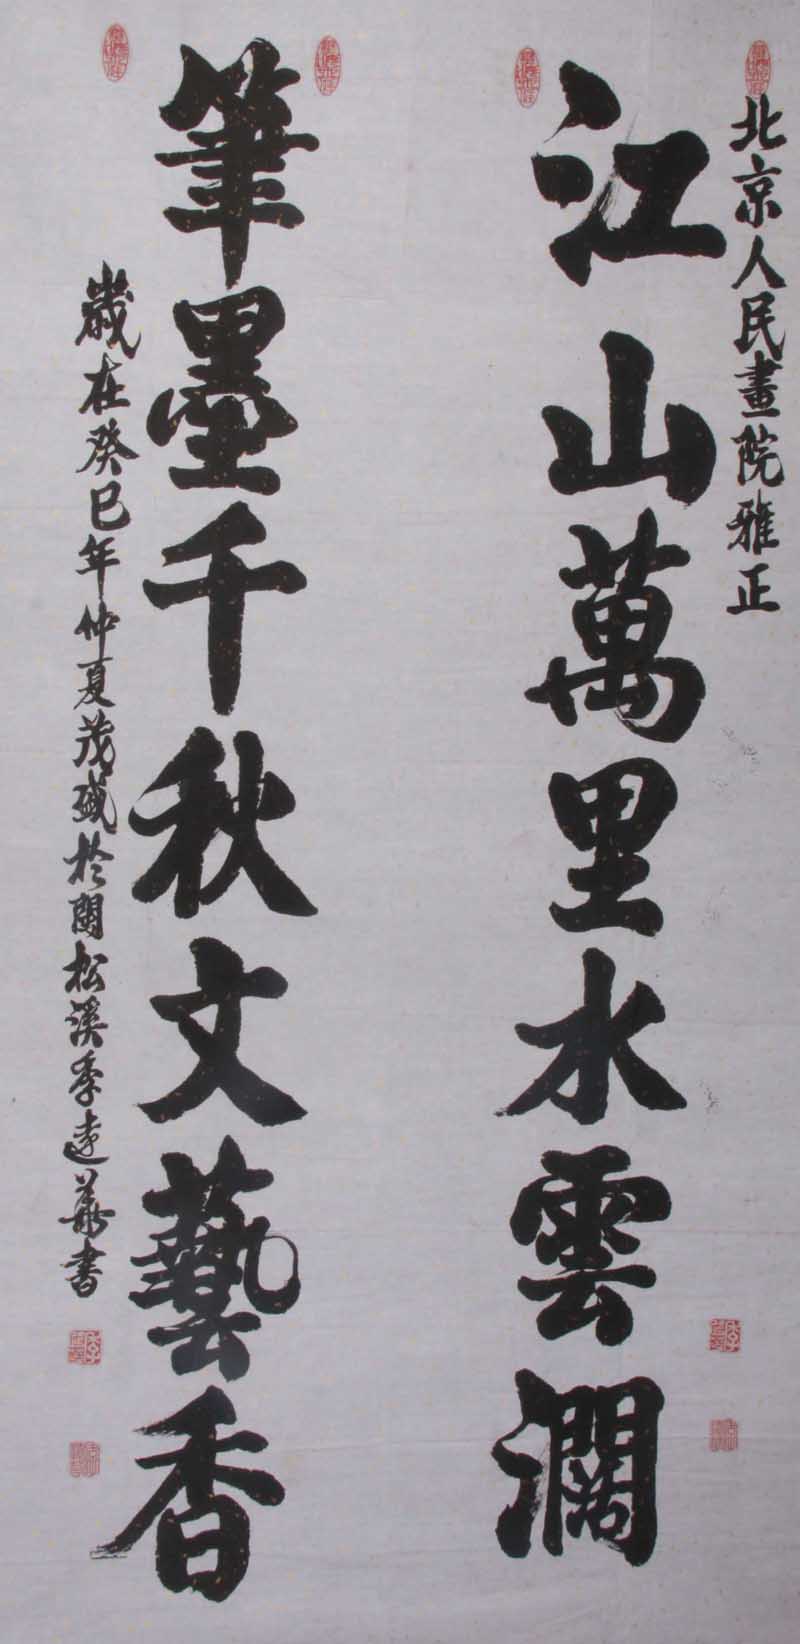 北京人民畫院雅正
江山萬里水雲濶
筆墨千秋文藝香
歲在癸巳年仲夏茂盛於閩松溪季達華書